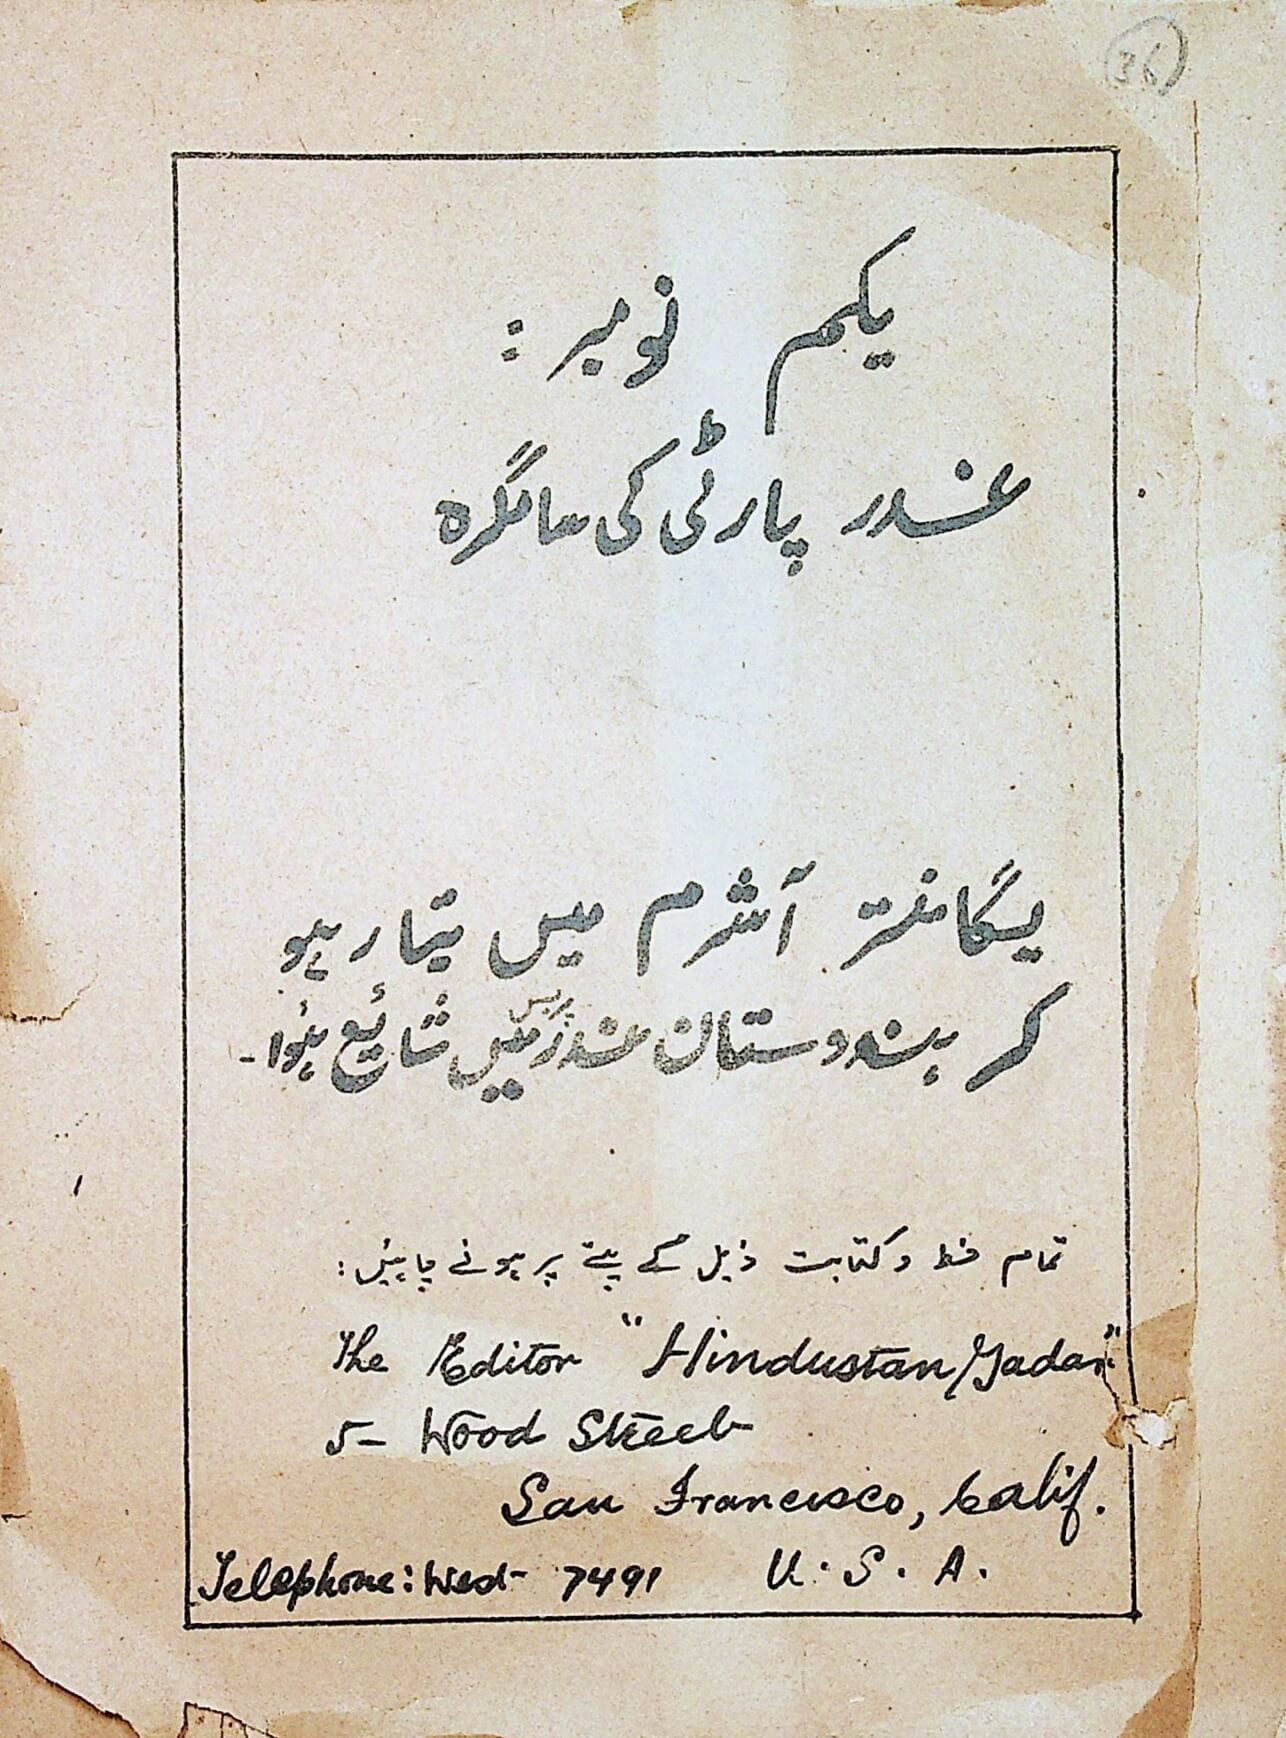 36
یکم نومبر :
غدر پارٹی کی سالگرہ
یگانتر آشرم میں تیار ہو
کر ہندوستان غدر پریس میں شائع ہؤا۔
تمام خط و کتابت ذیل کے پتے پر ہونے چاہئیں :
The Editor "Hindustan Gadar"
5- Wood Street
San Francisco, Calif.
Telephone: West- 7491 U. S. A.